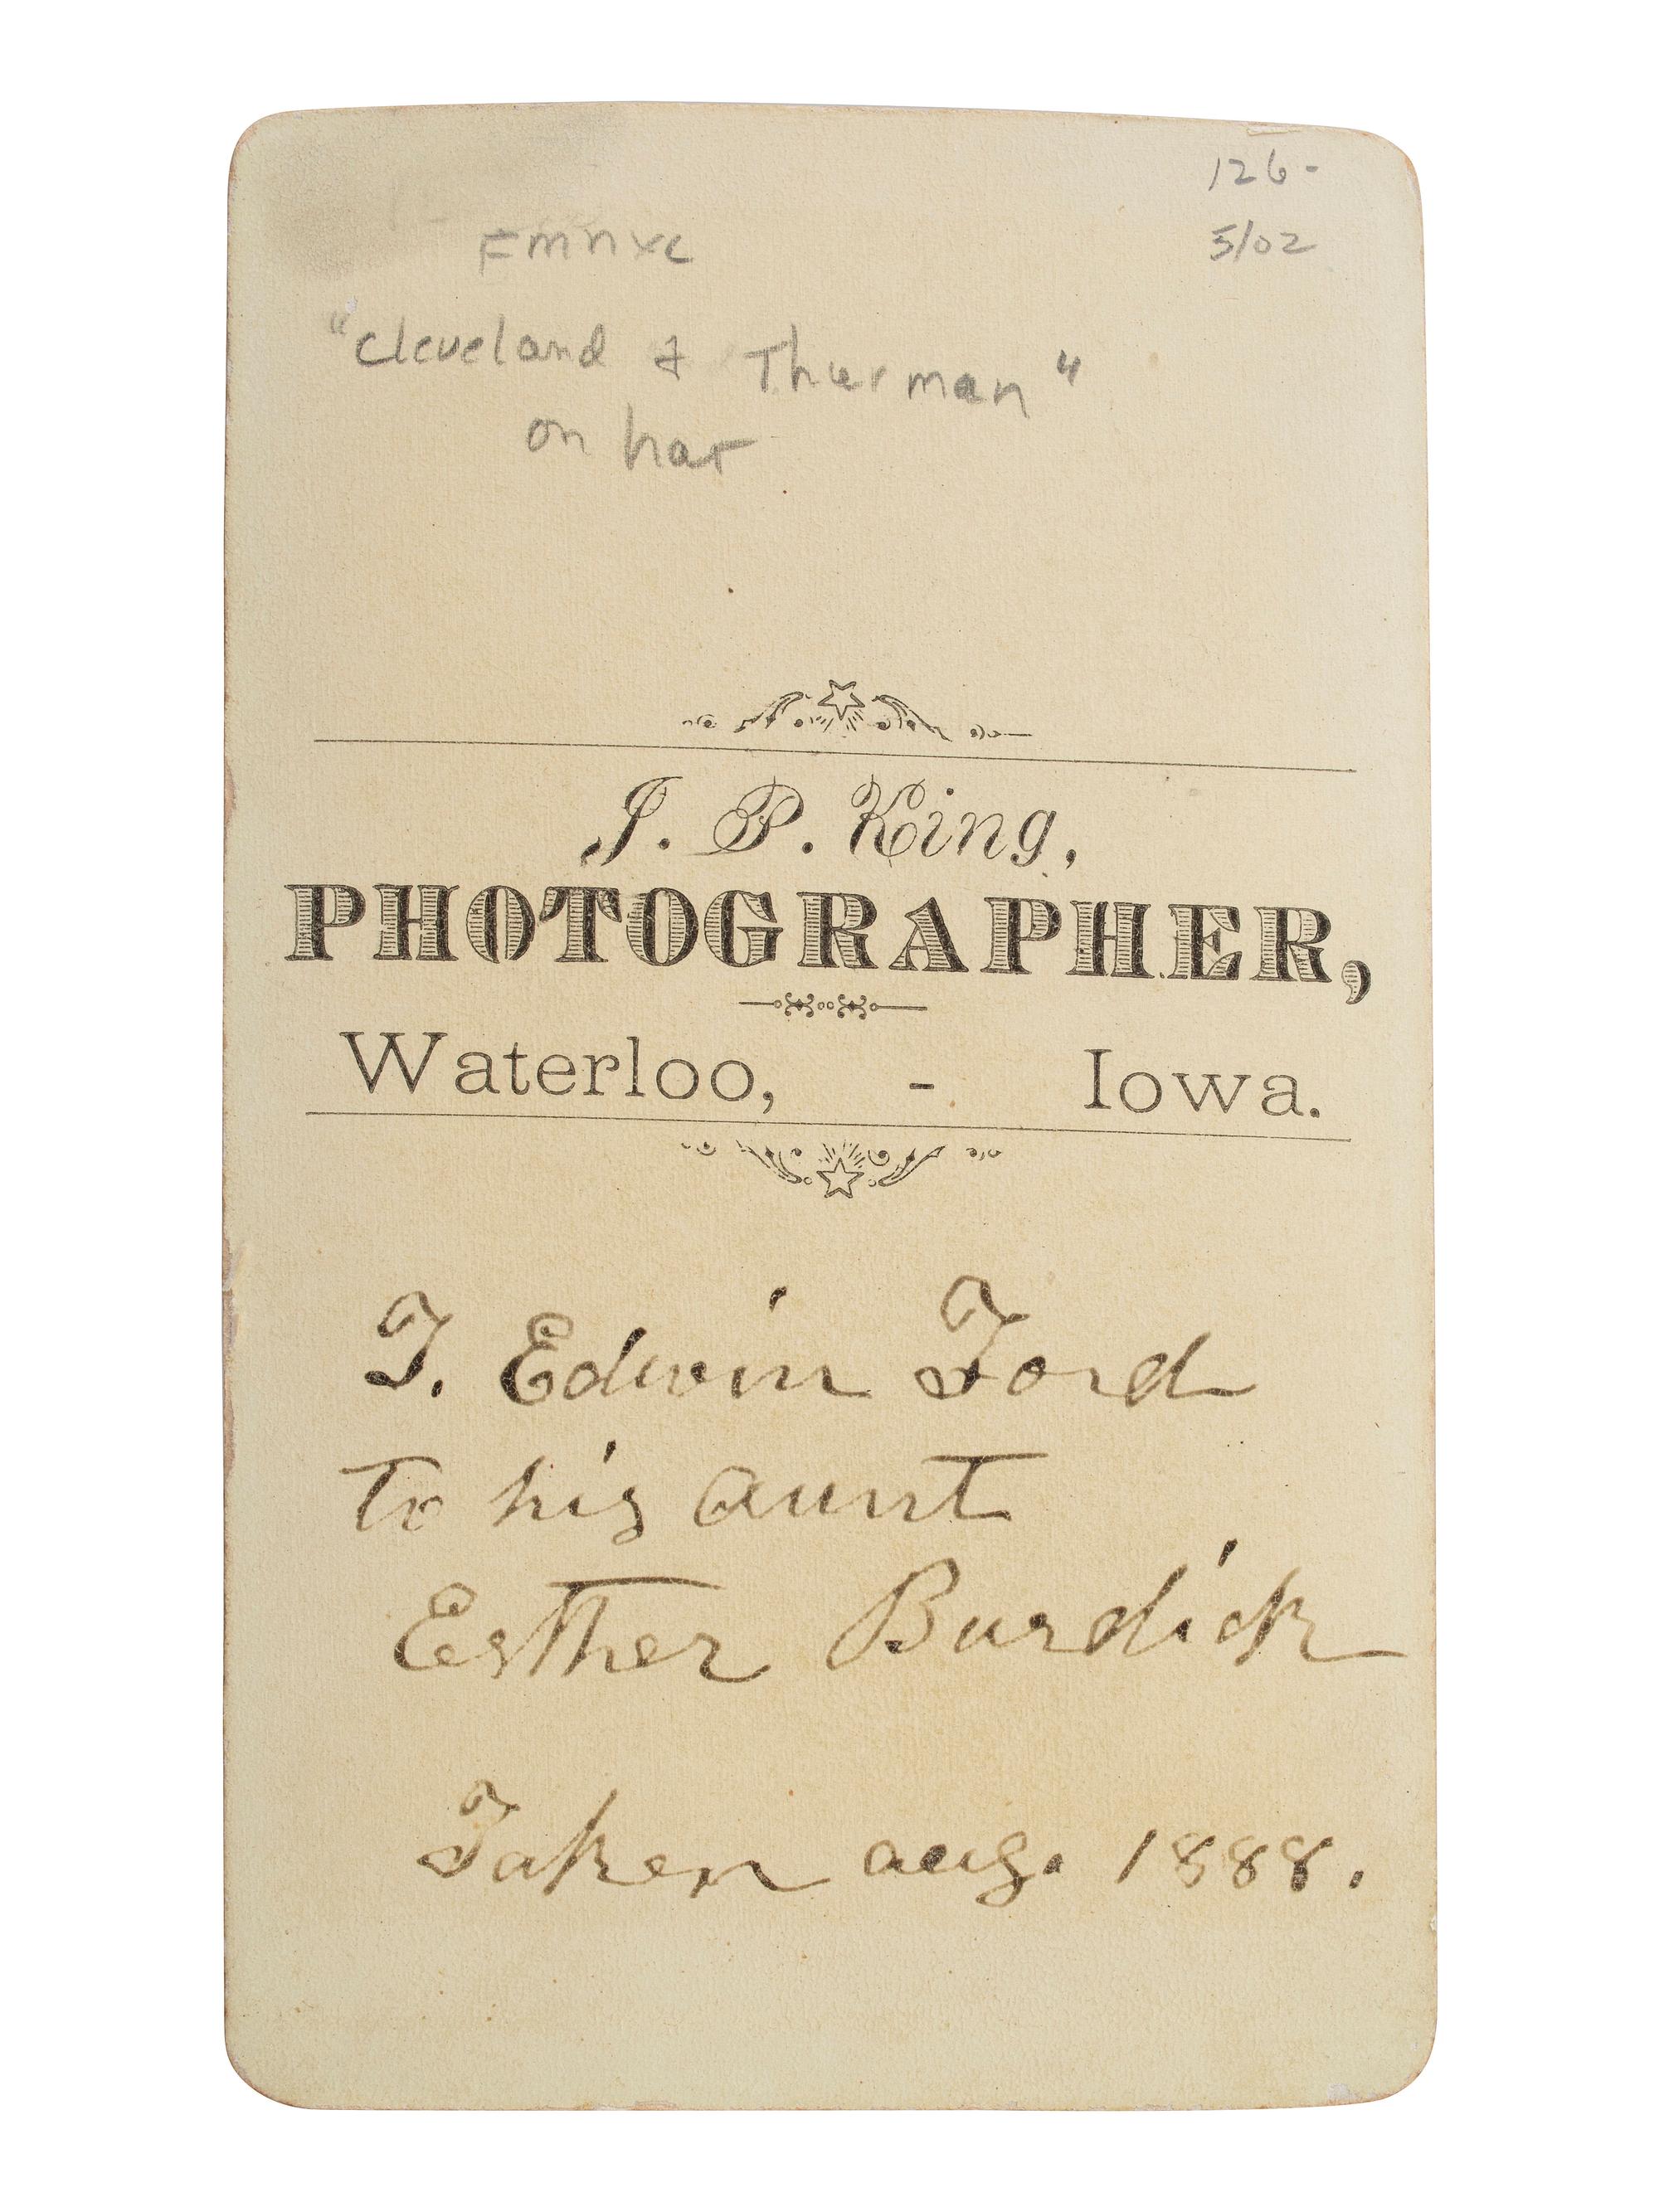 126-
5/02
Emnxc
"Cleveland & Thurman"
on hat
J. P. King,
PHOTOGRAPHER,
Waterloo, - Iowa.
T. Edwin Ford
to his aunt
Esther Burdick
Taken aug. 1888.